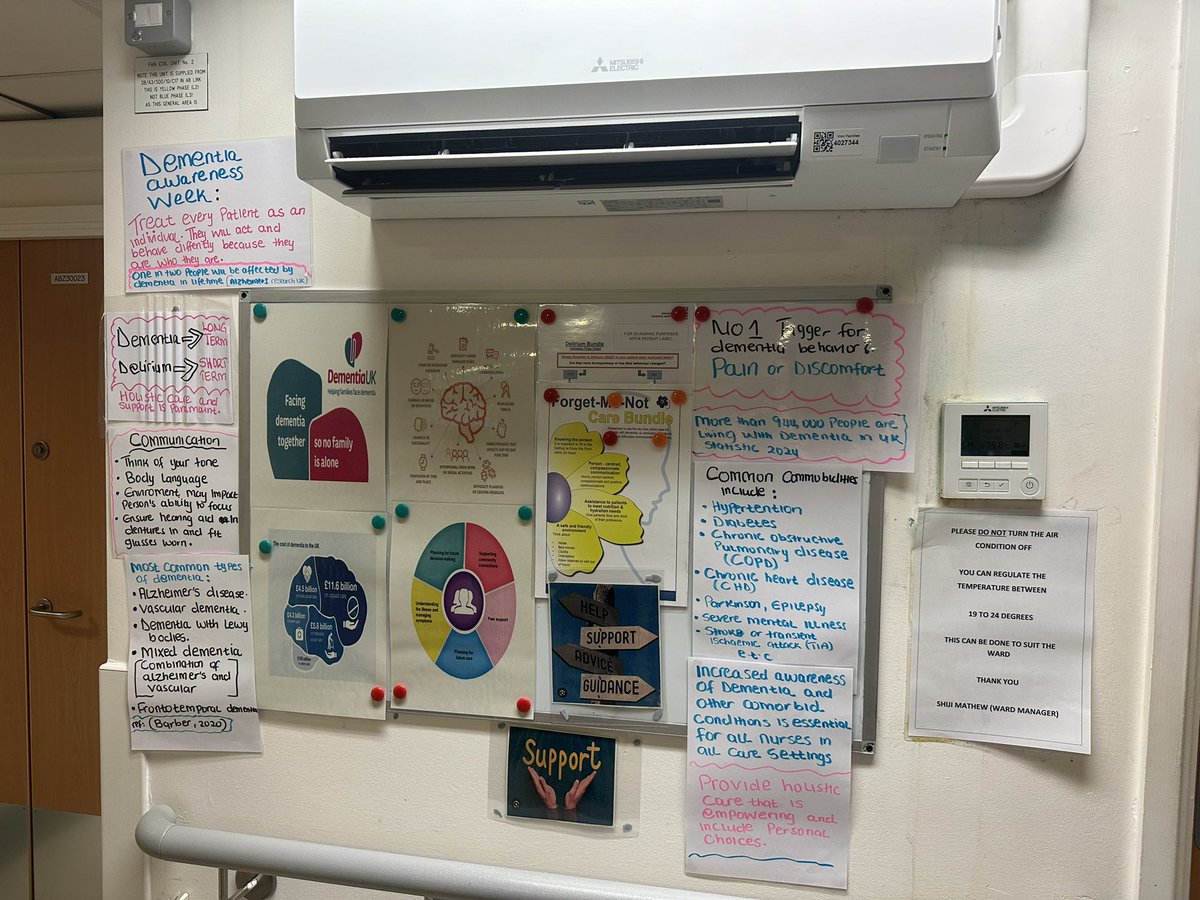 FAN COIL UNIT No. 2
NOTE THIS UNIT IS SUPPLIED FROM
DB/A3/500/10/C17 IN AB LINK
THIS IS YELLOW PHASE (L2)
NOT BLUE PHASE (L3)
AS THIS GENERAL AREA IS
MITSUBISHI
ELECTRIC
4027344
OPERATING
STANDBY
Dementia
awareness
Week:
Treat every Patient as an
individual. They will act and
behave diffently because they
are who they are.
One in two People will be affected by
dementia in lifetime (Alzheimers research UK)
ABZ30023
Dementia
LONG
TERM
Delirium
SHORT
TERM
HOLISTIC Care and
Support is Paramount.
Communication
• Think of your tone
• Body Language
• Enviroment may impact
Person's ability to focus
• Ensure hearing aid in
dentures in and fit
glasses worn.
Most Common types
of dementia:
• Alzheimer's disease.
• Vascular dementia.
• Dementia with Lewy
bodies.
• Mixed dementia
Combination of
alzheimer's and
vascular
• Frontotemporal dementia
(Barber, 2020)
DementiaUK
Helping families face dementia
Facing
dementia
together
so no family
is alone
MISPLACING
THINGS
CHANGES IN
PERSONALITY
CONFUSION OF TIME
AND PLACE
DIFFICULTY
PLANNING OR
SOLVING PROBLEMS
The cost of dementia in the UK
£4.5 billion
£11.6 billion
£5.8 billion
Planning for future
decision-making
Supporting
community
connections
Understanding
the illness and
managing
symptoms
Peer support
Planning for
future care
FOR SCANNING PURPOSES
AFFIX PATIENT LABEL
Delirium Bundle
Are they more drowsy/sleepy or has their behaviour changed?
Forget-Me-Not
Care Bundle
Knowing the person
Person-centred,
compassionate
communication
Assistance to patients
to meet nutrition &
hydration needs
A safe and friendly
environment
HELP
SUPPORT
ADVICE
GUIDANCE
Support
NO 1 Tigger for
dementia behavior:
Pain or Discomfort
More than 944,000 People are
Living with Dementia in UK
Statistic 2024
Common Commobilities
include:
• Hypertention
• Diabetes
• Chronic obstructive
Pulmonary disease
(COPD)
• Chronic heart disease
(CHD)
• Parkinson, Epilepsy
• Severe mental illness
• Stroke or transient
ischaemic attack (TIA)
e.t.c
Increased awareness
of Dementia and
other comorbid
Conditions is essential
for all Nurses in
all Care Settings
Provide holistic
Care that is
empowering and
include Personal
Choices.
MITSUBISHI
ELECTRIC
PLEASE DO NOT TURN THE AIR
CONDITION OFF
YOU CAN REGULATE THE
TEMPERATURE BETWEEN
19 TO 24 DEGREES
THIS CAN BE DONE TO SUIT THE
WARD
THANK YOU
SHIJI MATHEW (WARD MANAGER)